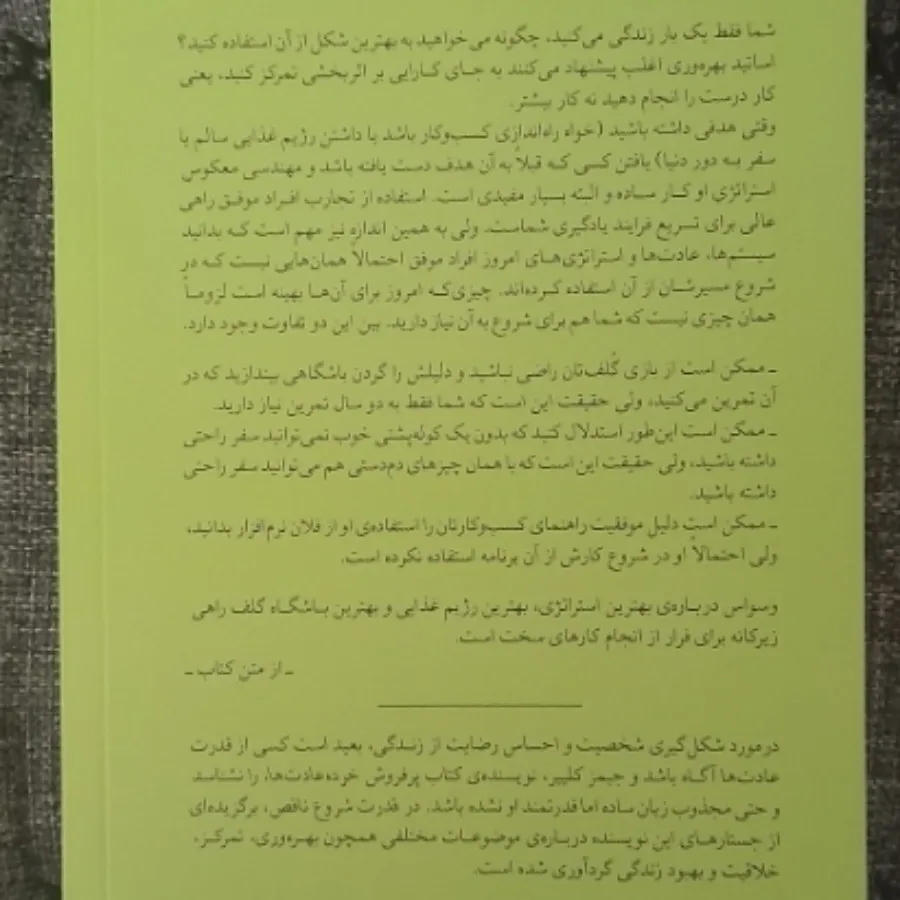 شما فقط یک بار زندگی می‌کنید، چگونه می‌خواهید به بهترین شکل از آن استفاده کنید؟
اساتید بهره‌وری اغلب پیشنهاد می‌کنند به جای کارایی بر اثربخشی تمرکز کنید، یعنی
کار درست را انجام دهید نه کار بیشتر.
وقتی هدفی داشته باشید (خواه راه‌اندازی کسب‌وکار باشد یا داشتن رژیم غذایی سالم یا
سفر به دور دنیا) یافتن کسی که قبلاً به آن هدف دست یافته باشد و مهندسی معکوس
استراتژی او کار ساده و البته بسیار مفیدی است. استفاده از تجارب افراد موفق راهی
عالی برای تسریع فرایند یادگیری شماست. ولی به همین اندازه نیز مهم است که بدانید
سیستم‌ها، عادت‌ها و استراتژی‌های امروز افراد موفق احتمالاً همان‌هایی نیست که در
شروع مسیرشان از آن استفاده کرده‌اند. چیزی‌که امروز برای آن‌ها بهینه است لزوماً
همان چیزی نیست که شما هم برای شروع به آن نیاز دارید. بین این دو تفاوت وجود دارد.
ـ ممکن است از بازی گُلف‌تان راضی نباشید و دلیلش را گردن باشگاهی بیندازید که در
آن تمرین می‌کنید، ولی حقیقت این است که شما فقط به دو سال تمرین نیاز دارید.
ـ ممکن است این‌طور استدلال کنید که بدون یک کوله‌پشتی خوب نمی‌توانید سفر راحتی
داشته باشید، ولی حقیقت این است که با همان چیزهای دم‌دستی هم می‌توانید سفر راحتی
داشته باشید.
ـ ممکن است دلیل موفقیت راهنمای کسب‌وکارتان را استفاده‌ی او از فلان نرم‌افزار بدانید،
ولی احتمالاً او در شروع کارش از آن برنامه استفاده نکرده است.
وسواس درباره‌ی بهترین استراتژی، بهترین رژیم غذایی و بهترین باشگاه گلف راهی
زیرکانه برای فرار از انجام کارهای سخت است.
ـ از متن کتاب ـ
درمورد شکل‌گیری شخصیت و احساس رضایت از زندگی، بعید است کسی از قدرت
عادت‌ها آگاه باشد و جیمز کلییر، نویسنده‌ی کتاب پرفروش خرده‌عادت‌ها، را نشناسد
و حتی مجذوب زبان ساده اما قدرتمند او نشده باشد. در قدرت شروع ناقص، برگزیده‌ای
از جستارهای این نویسنده درباره‌ی موضوعات مختلفی همچون بهره‌وری، تمرکز،
خلاقیت و بهبود زندگی گردآوری شده است.